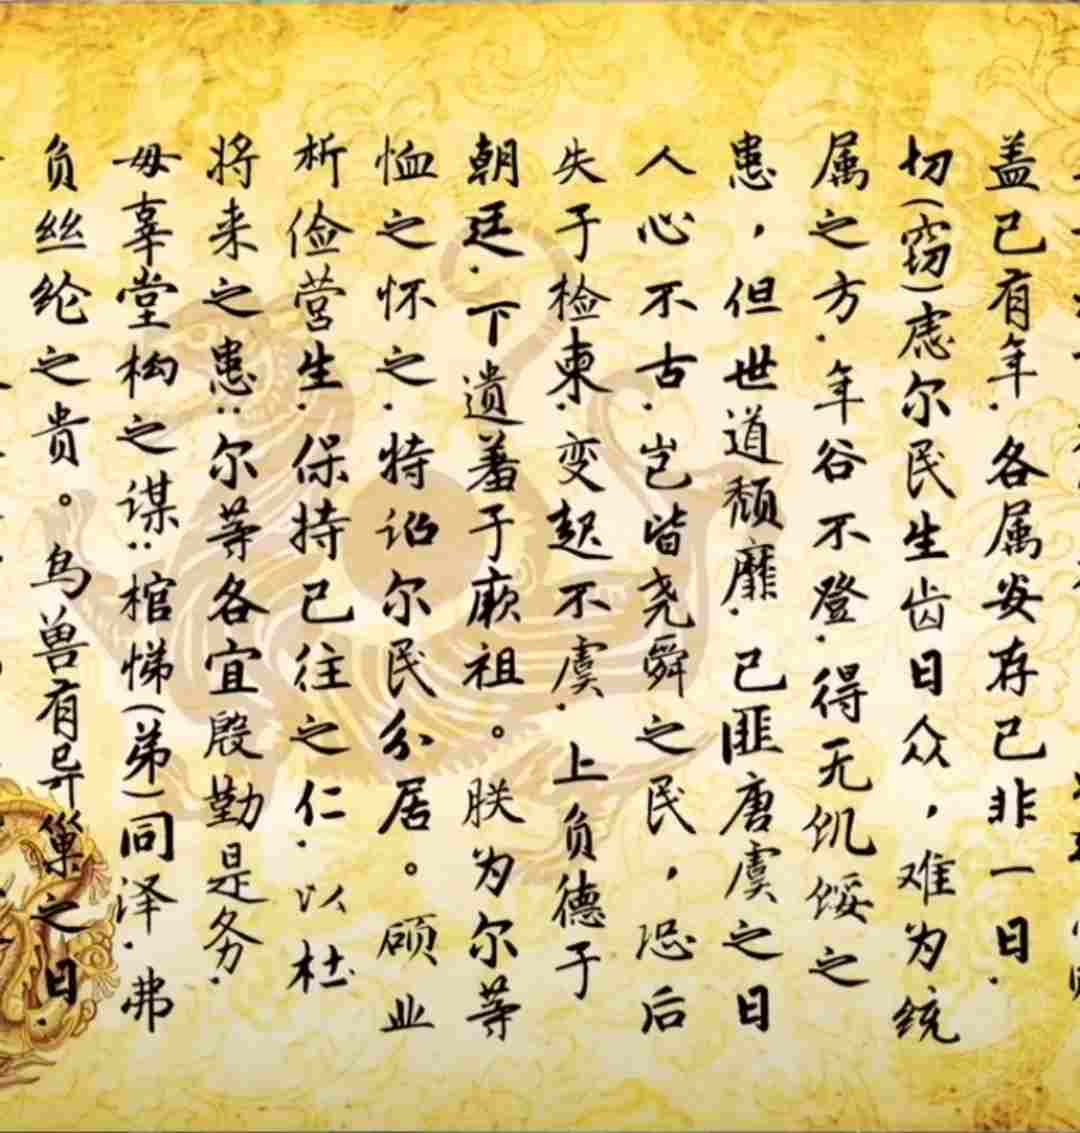 盖已有年.各属安存已非一日.
切(窃)虑尔民生齿日众，难为统
属之方.年谷不登.得无饥馁之
患，但世道颓靡.已匪唐虞之日
人心不古.岂皆尧舜之民，恐后
失于检柬.变起不虞.上负德于
朝廷.下遗羞于厥祖。朕为尔等
恤之怀之.特诏尔民分居。硕业
析俭营生.保持已往之仁.以杜
将来之患:尔等各宜殷勤是务.
毋辜堂构之谋:棺悌(弟)同泽.弗
负丝纶之贵。鸟兽有异巢之日.